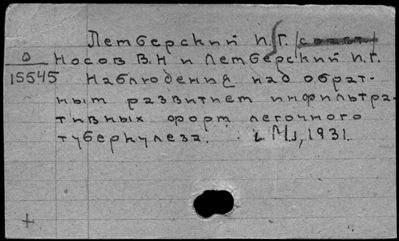 Лемберский И.Г.
О Носов В.Н и Лемберский И.Г.
15545 Наблюдения над обрат-
ным развитием инфильтра-
тивных форм легочного
туберкулеза. М., 1931.